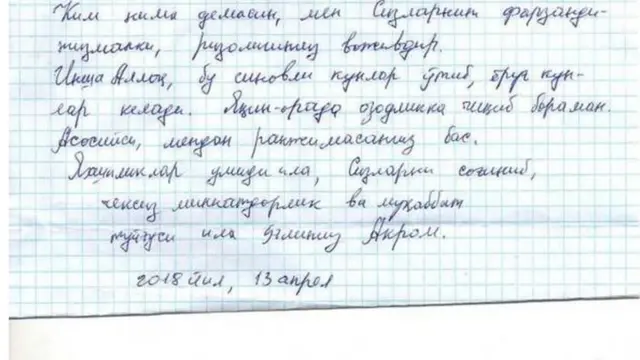 Ким нима демасин, мен Сизларнинг фарзанди-
нгизманки, ризолигингиз вожибдир.
Инша Аллоҳ, бу синовли кунлар ўтиб, ёруғ кун-
лар келади. Яқин-орада озодликка чиқиб бораман.
Асосийси, мендан ранжимасангиз бас.
Яхшиликлар умиди ила, Сизларни соғиниб,
чексиз миннатдорлик ва муҳаббат
туйғуси ила ўғлингиз Акром.
2018 йил, 13 апрел